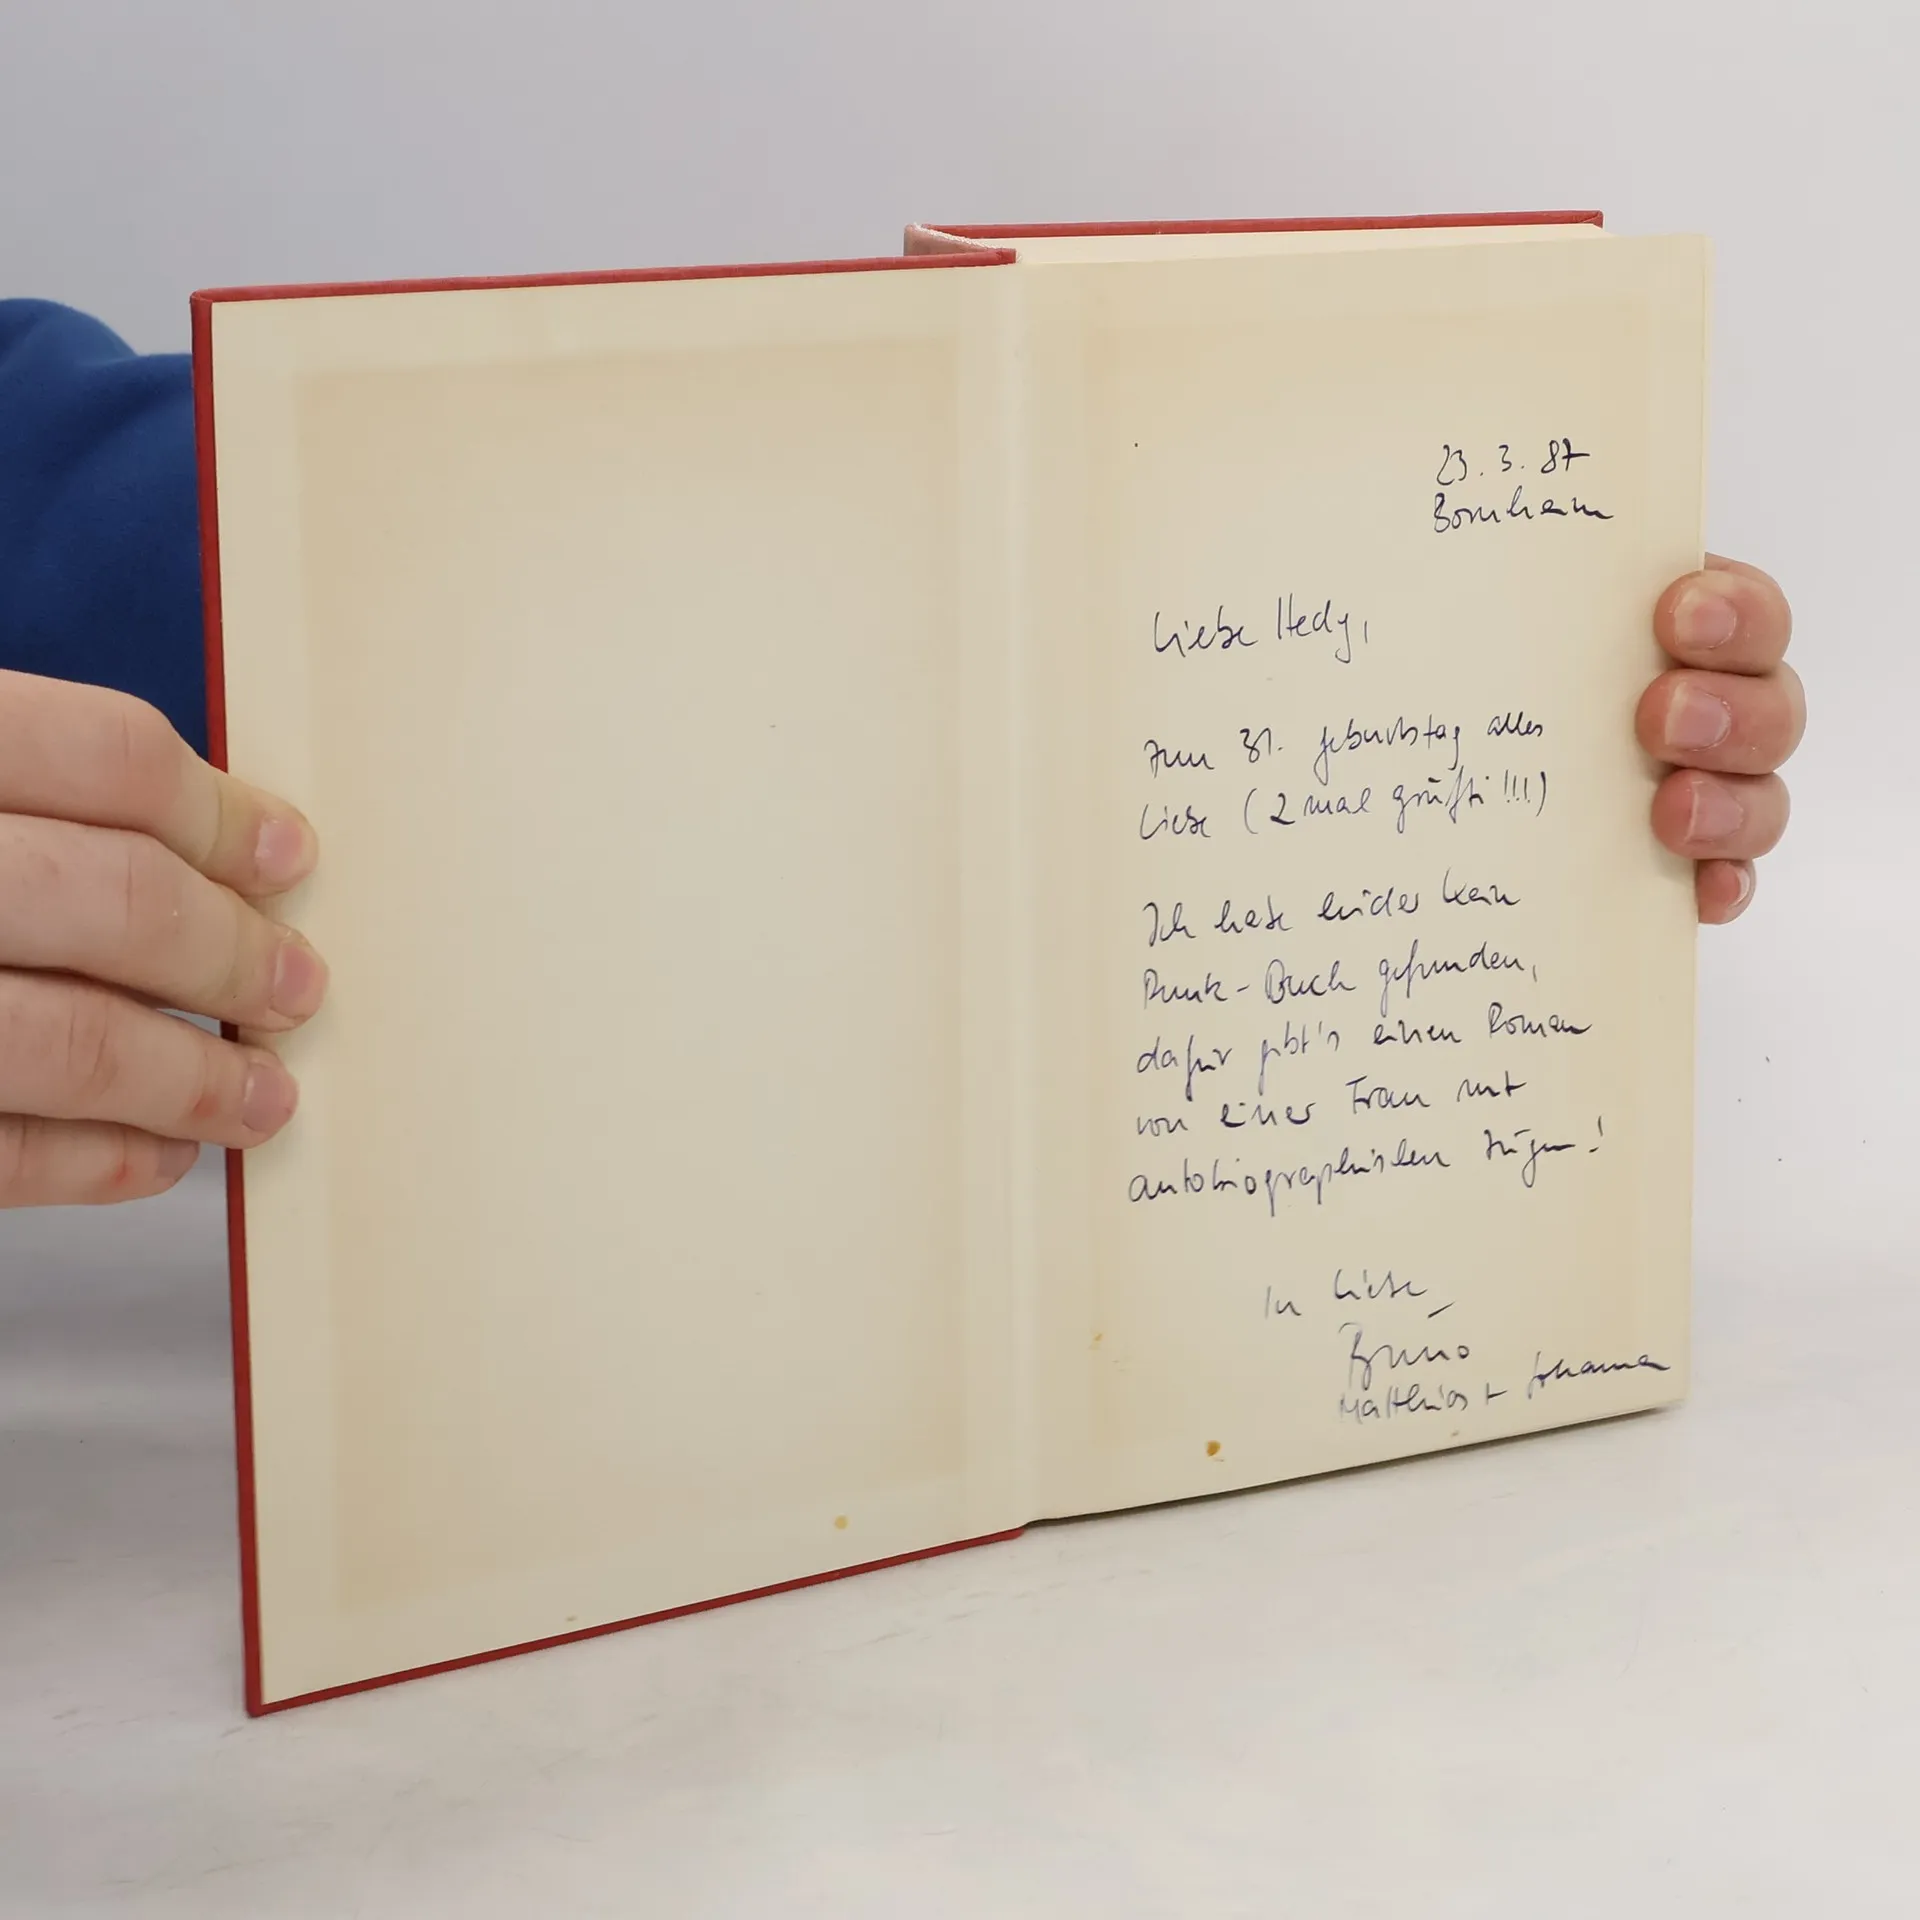 23. 3. 87
Bornheim
Liebe Hedy,
zum 31. Geburtstag alles
Liebe (2 mal grufti!!!)
Ich habe leider kein
Punk-Buch gefunden,
dafür gibt's einen Roman
von einer Frau mit
autobiographischen Zügen!
In Liebe
Bruno
Matthias + Johanna